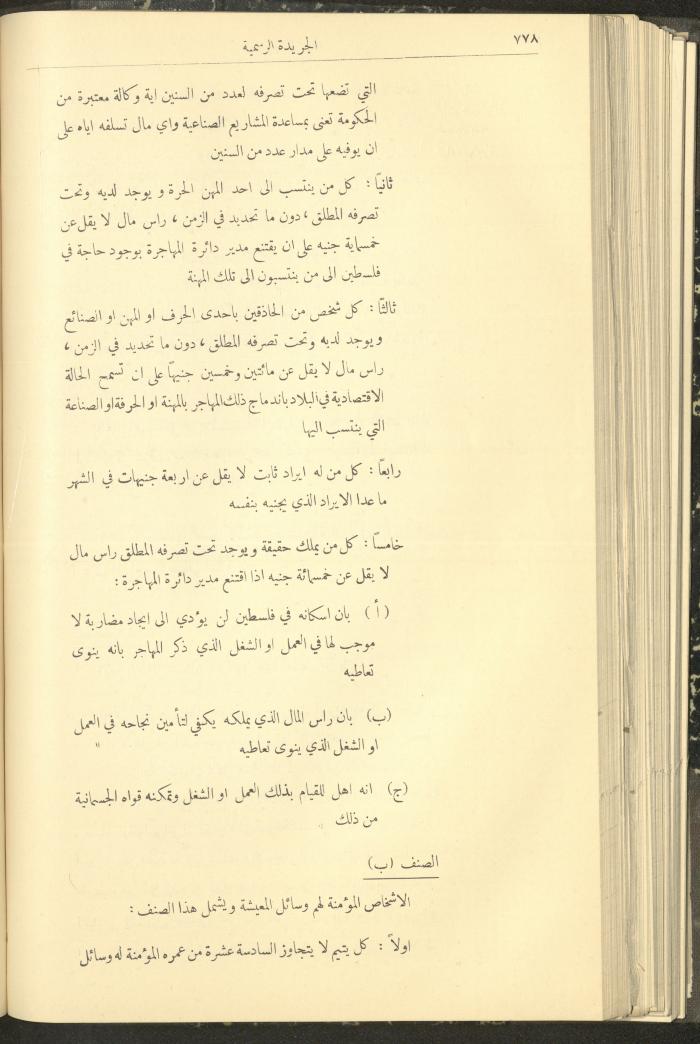 ٧٧٨
الجريدة الرسمية
التي تضعها تحت تصرفه لعدد من السنين اية وكالة معتبرة من
الحكومة تعنى بمساعدة المشاريع الصناعية واي مال تسلفه اياه على
ان يوفيه على مدار عدد من السنين
ثانياً : كل من ينتسب الى احد المهن الحرة و يوجد لديه وتحت
تصرفه المطلق ، دون ما تحديد في الزمن ، راس مال لا يقل عن
خمسماية جنيه على ان يقتنع مدير دائرة المهاجرة بوجود حاجة في
فلسطين الى من ينتسبون الى تلك المهنة
ثالثاً : كل شخص من الحاذقين باحدى الحرف او المهن او الصنائع
و يوجد لديه وتحت تصرفه المطلق ، دون ما تحديد في الزمن ،
راس مال لا يقل عن مائتين وخمسين جنيهاً على ان تسمح الحالة
الاقتصادية في البلاد باندماج ذلك المهاجر بالمهنة او الحرفة او الصناعة
التي ينتسب اليها
رابعاً : كل من له ايراد ثابت لا يقل عن اربعة جنيهات في الشهر
ما عدا الايراد الذي يجنيه بنفسه
خامساً : كل من يملك حقيقة و يوجد تحت تصرفه المطلق راس مال
لا يقل عن خمسمائة جنيه اذا اقتنع مدير دائرة المهاجرة :
( أ ) بان اسكانه في فلسطين لن يؤدي الى ايجاد مضاربة لا
موجب لها في العمل او الشغل الذي ذكر المهاجر بانه ينوى
تعاطيه
(ب) بان راس المال الذي يملكه يكفي لتأمين نجاحه في العمل
او الشغل الذي ينوى تعاطيه
(ج) انه اهل للقيام بذلك العمل او الشغل وتمكنه قواه الجسمانية
من ذلك
الصنف (ب)
الاشخاص المؤمنة لهم وسائل المعيشة و يشمل هذا الصنف :
اولاً : كل يتيم لا يتجاوز السادسة عشرة من عمره المؤمنة له وسائل